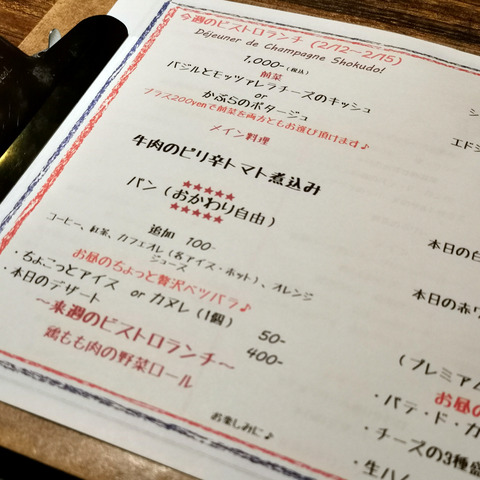 今週のビストロランチ (2/12~2/15)
Déjeuner de Champagne Shokudo!
1,000-(税込)
前菜
バジルとモッツァレラチーズのキッシュ
or
かぶらのポタージュ
プラス200yenで前菜を両方ともお選び頂けます♪
メイン料理
牛肉のピリ辛トマト煮込み
★★★★★
パン(おかわり自由)
★★★★★
追加 100-
コーヒー、紅茶、カフェオレ(各アイス・ホット)、オレンジ
ジュース
お昼のちょっと贅沢ベツバラ♪
・ちょこっとアイス or カヌレ(1個) 50-
・本日のデザート 400-
～来週のビストロランチ～
鶏もも肉の野菜ロール
お楽しみに♪
シ
エドシ
本日の白
本日の赤ワ
(プレミアム
お昼の
・パテ・ド・カ
・チーズの3種盛
・生ハム